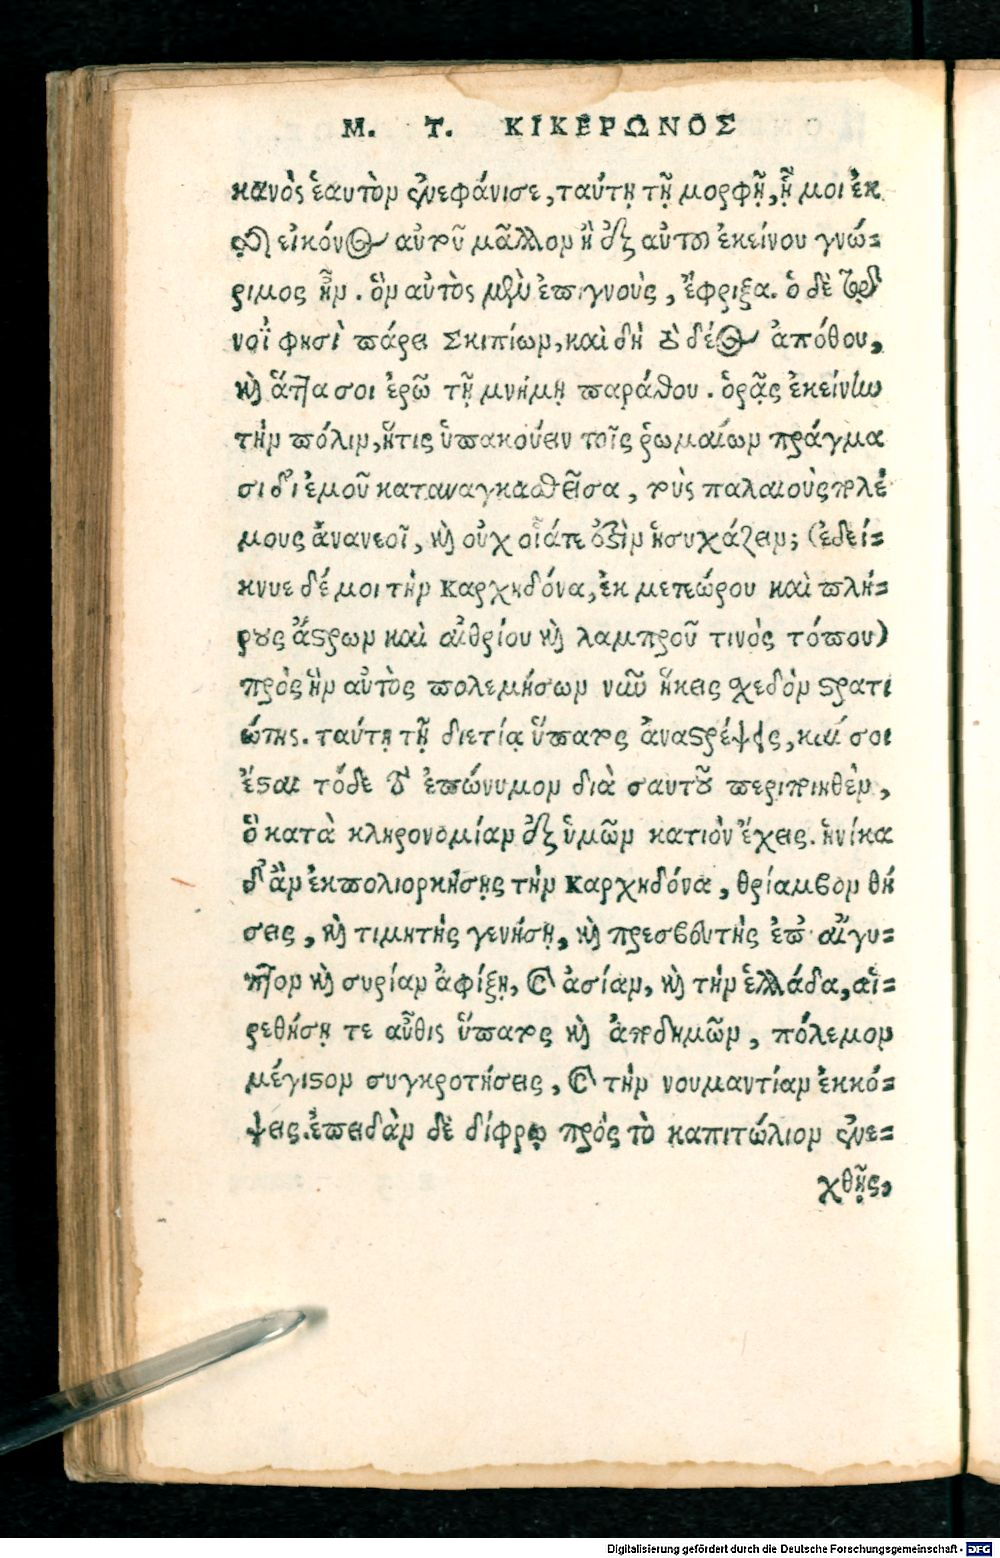 Μ. Τ. ΚΙΚΕΡΩΝΟΣ
κανὸς ἑαυτὸν ἐνεφάνισε, ταύτῃ τῇ μορφῇ, ἥ μοι ἐκ
τῆς εἰκόνος αὐτοῦ μᾶλλον ἢ ἐξ αὐτοῦ ἐκείνου γνώ-
ριμος ἦν. ὃν αὐτὸς μὲν ἐπιγνοὺς, ἔφριξα. ὁ δὲ
νοῒ φησὶ πάρει Σκιπίων, καὶ δὴ τὸ δέος ἀπόθου,
καὶ ἅττα σοι ἐρῶ τῇ μνήμῃ παράθου. ὁρᾷς ἐκείνην
τὴν πόλιν, ἥτις ὑπακούειν τοῖς ῥωμαίων πράγμα
σι δι' ἐμοῦ καταναγκασθεῖσα, τοὺς παλαιοὺς πολέ
μους ἀνανεοῖ, καὶ οὐχ οἵάτε ἐστὶν ἡσυχάζειν; (ἐδεί-
κνυε δέ μοι τὴν Καρχηδόνα, ἐκ μετεώρου καὶ πλή-
ρους ἄστρων καὶ αἰθρίου καὶ λαμπροῦ τινὸς τόπου)
πρὸς ἣν αὐτὸς πολεμήσων νῦν ἥκεις σχεδὸν στρατι
ώτης. ταύτῃ τῇ διετίᾳ ὕπατος ἀναστρέψεις, καί σοι
ἔσται τόδε τὸ ἐπώνυμον διὰ σαυτοῦ περιποιηθὲν,
ὃ κατὰ κληρονομίαν ἐξ ὑμῶν κατιὸν ἔχεις. ἡνίκα
δ' ἂν ἐκπολιορκήσῃς τὴν Καρχηδόνα, θρίαμβον θή
σεις, καὶ τιμητὴς γενήσῃ, καὶ πρεσβευτὴς ἐπ' αἴγυ-
πτον καὶ συρίαν ἀφίξῃ, καὶ ἀσίαν, καὶ τὴν ἑλλάδα, αἱ-
ρεθήσῃ τε αὖθις ὕπατος καὶ ἀποδημῶν, πόλεμον
μέγιστον συγκροτήσεις, καὶ τὴν νουμαντίαν ἐκκό-
ψεις. ἐπειδὰν δὲ δίφρῳ πρὸς τὸ καπιτώλιον ἐνε-
χθῇς,
Digitalisierung gefördert durch die Deutsche Forschungsgemeinschaft - DFG